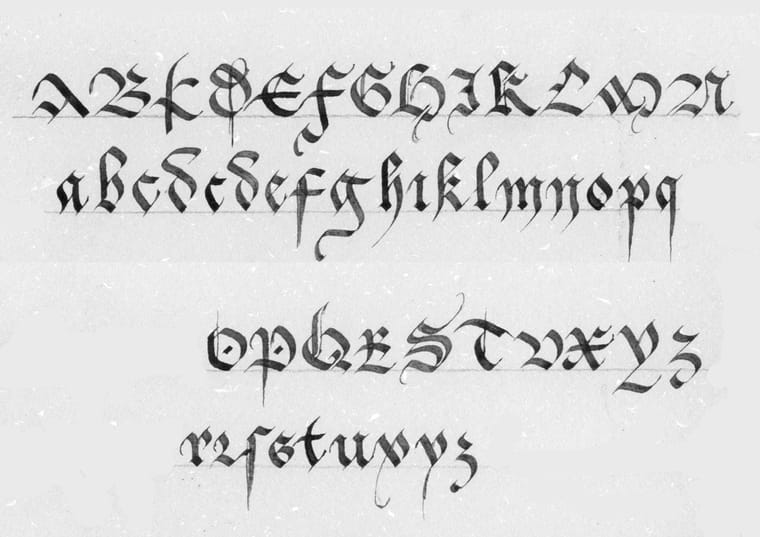 ABCDEFGHIKLMN
abcdcdefghiklmnopq
OPQRSTVXYZ
rꝛſstuvyz